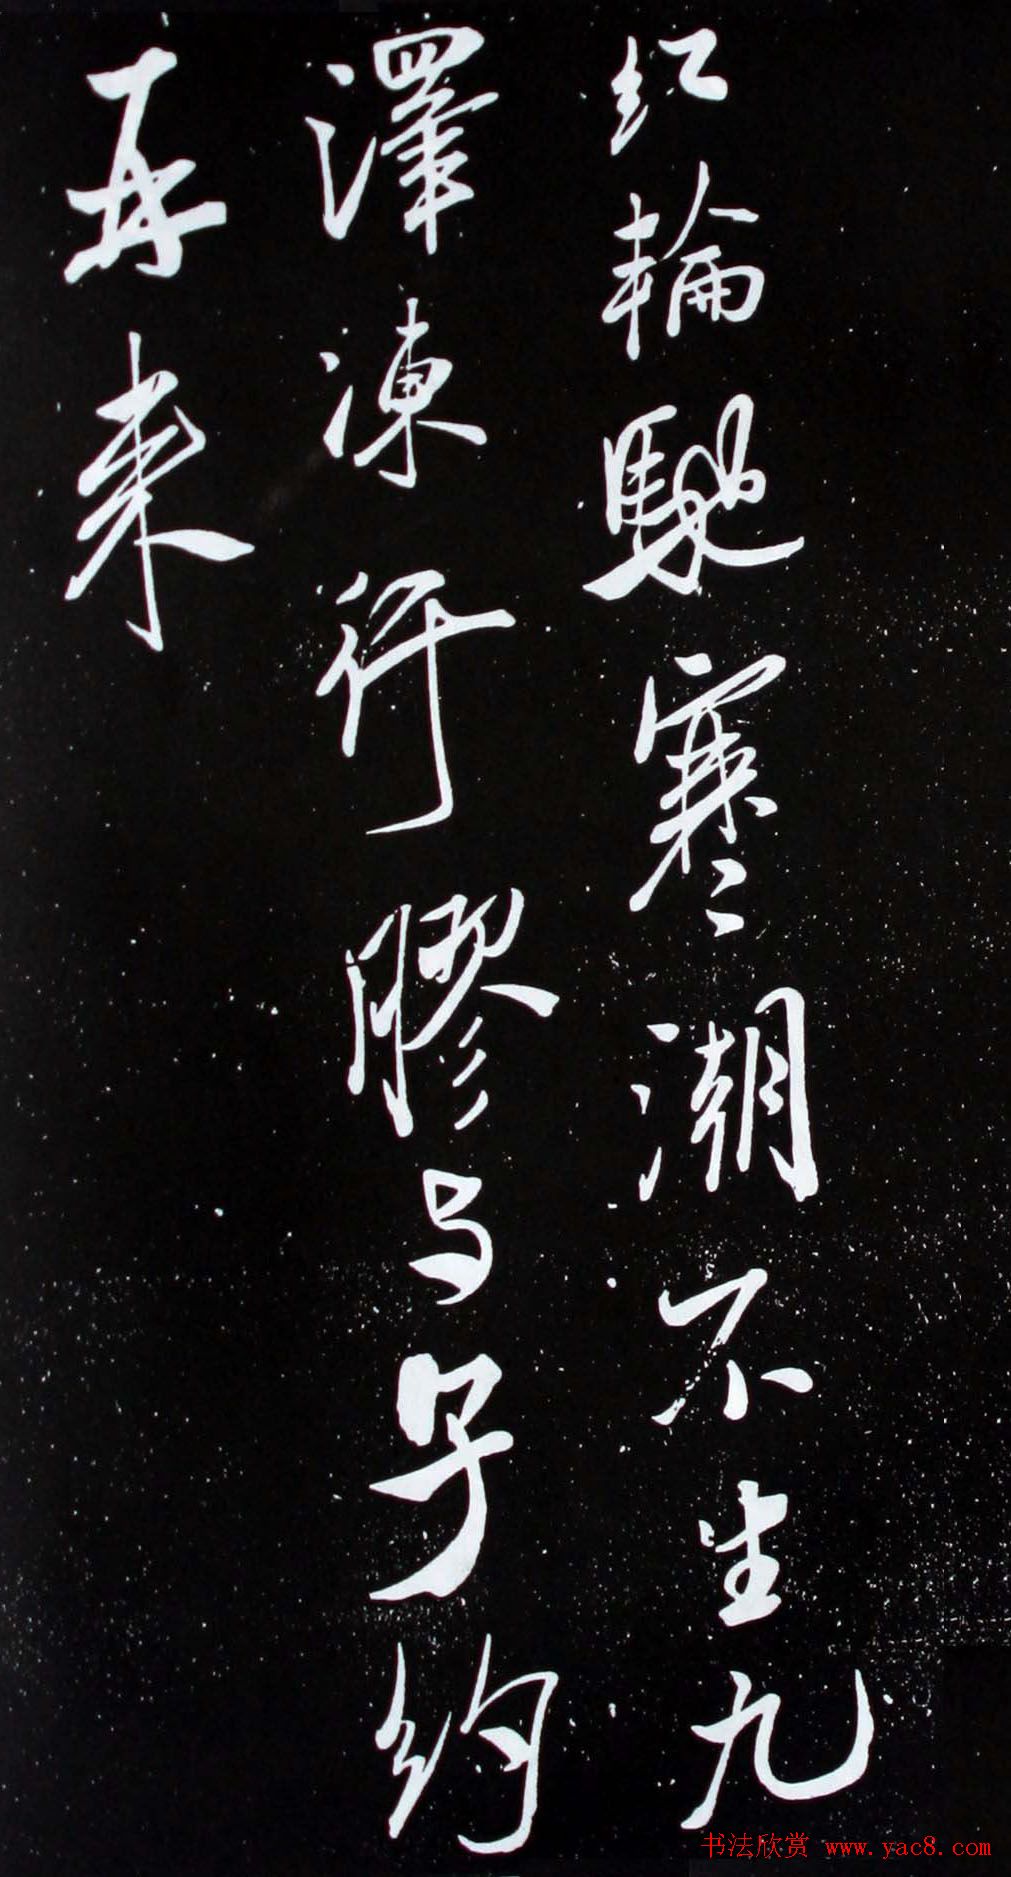 红輪駛寒潮不生九
澤凍行膠与子約
再来
书法欣赏 www.yac8.com